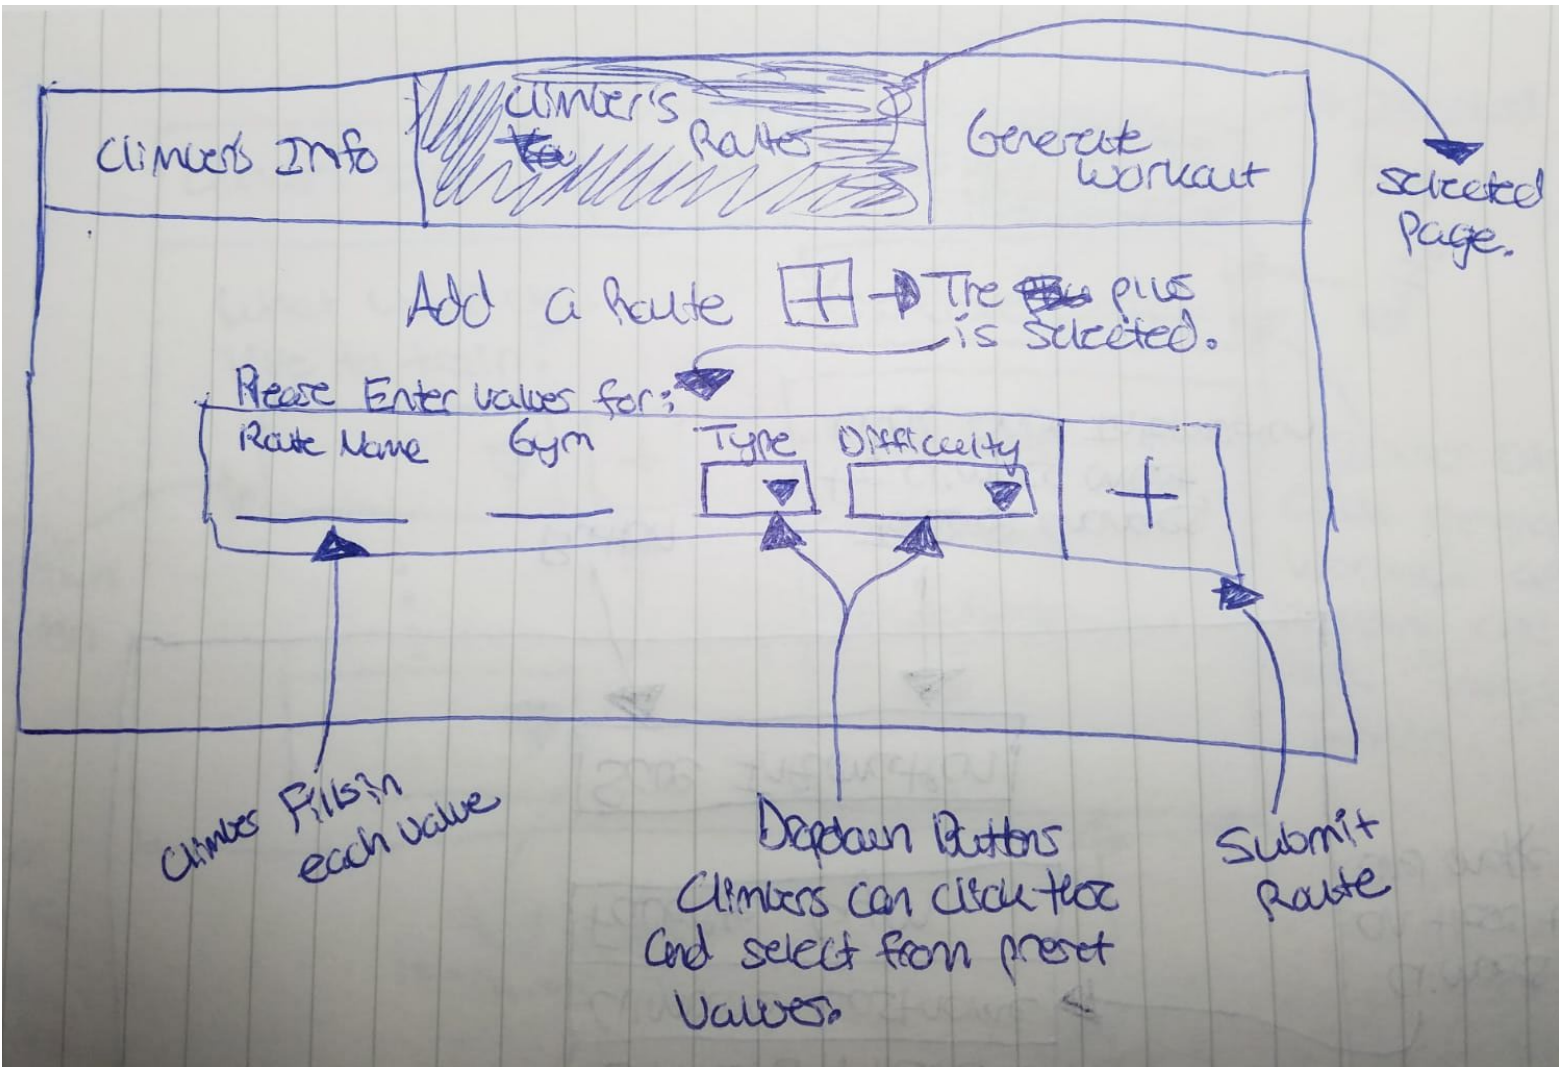 Climber's Info
Climber's
Routes
Generate
Workout
Selected
Page.
Add a Route + The plus
is selected.
Please Enter values for:
Route Name Gym Type Difficulty +
Climber Fills in
each value
Dropdown Buttons
Climbers can click these
and select from preset
values.
Submit
Route